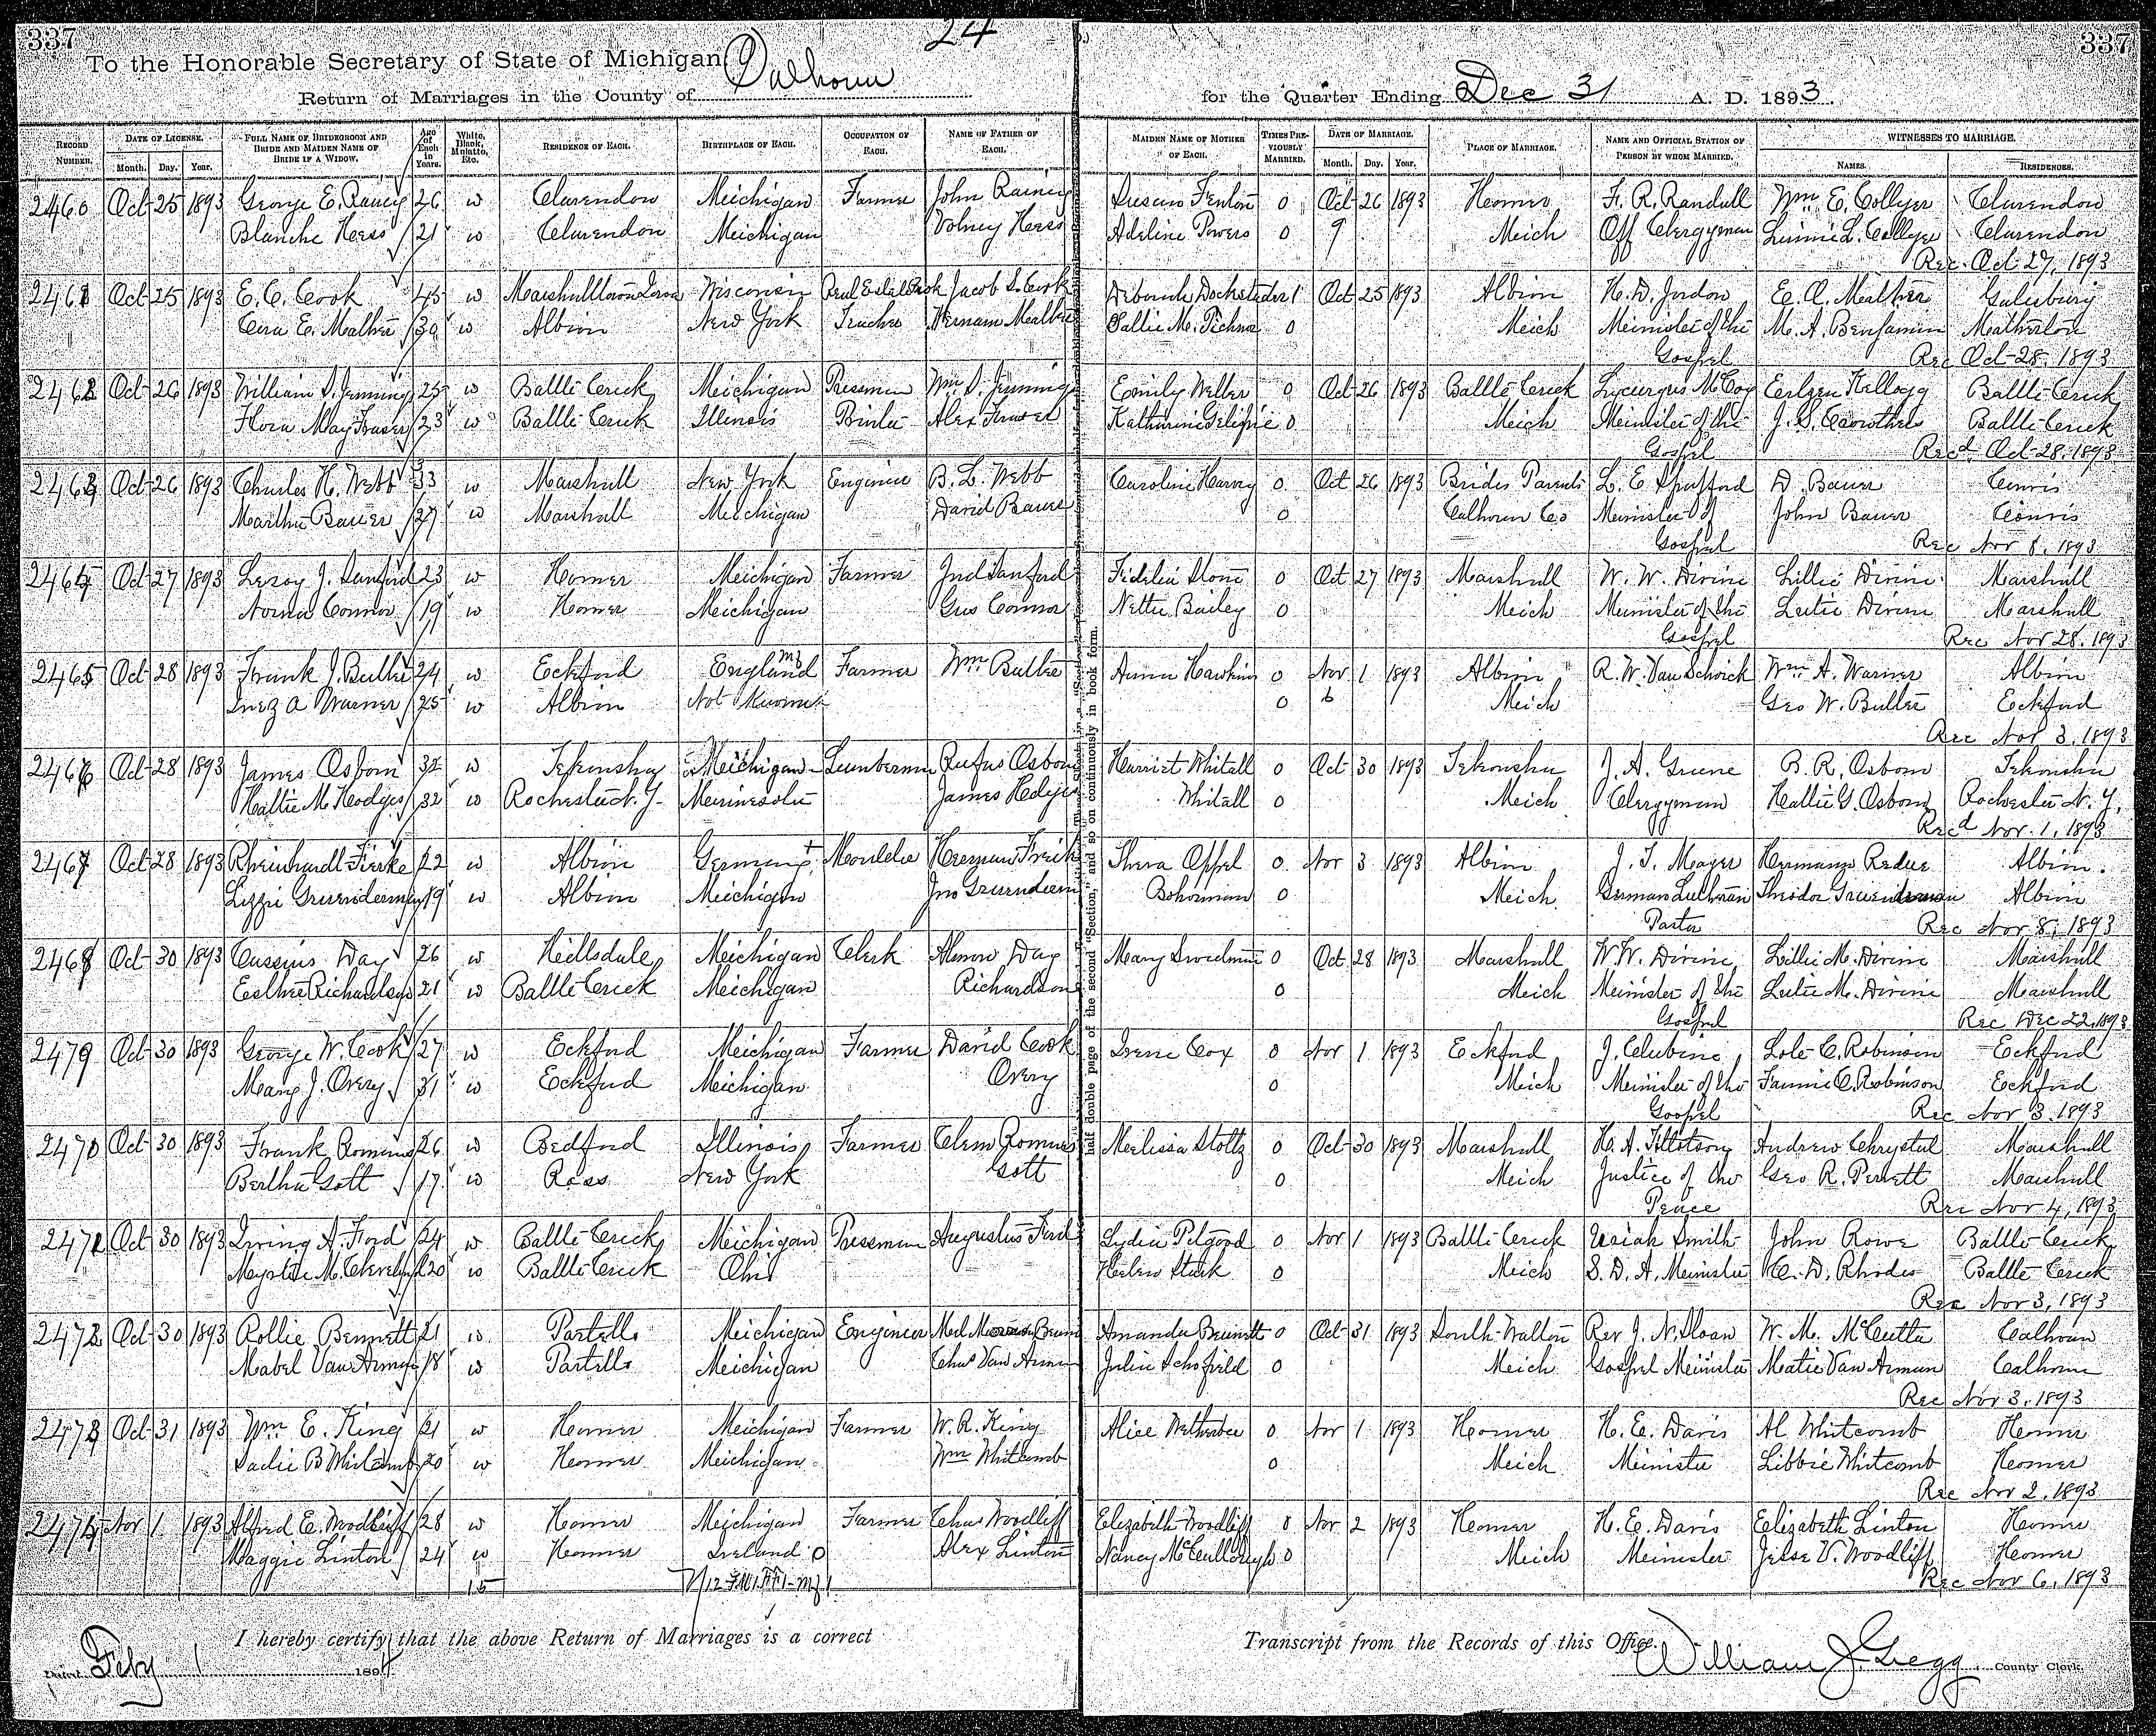 337
24
337
To the Honorable Secretary of State of Michigan
Return of Marriages in the County of Calhoun for the Quarter Ending Dec 31 A. D. 1893.
RECORD NUMBER. DATE OF LICENSE. Month. Day. Year. FULL NAME OF BRIDEGROOM AND BRIDE AND MAIDEN NAME OF BRIDE IF A WIDOW. Age of Each in Years. White, Black, Mulatto, Etc. RESIDENCE OF EACH. BIRTHPLACE OF EACH. OCCUPATION OF EACH. NAME OF FATHER OF EACH. MAIDEN NAME OF MOTHER OF EACH. TIMES PREVIOUSLY MARRIED. DATE OF MARRIAGE. Month. Day. Year. PLACE OF MARRIAGE. NAME AND OFFICIAL STATION OF PERSON BY WHOM MARRIED. WITNESSES TO MARRIAGE. NAMES. RESIDENCES.
2460 Oct 25 1893 George E. Rainey 26 w Clarendon Michigan Farmer John Rainey Susan Fenton 0 Oct 26 1893 Homer F. R. Randall Wm E. Collyer Clarendon
Blanche Hess 21 w Clarendon Michigan Volney Hess Adeline Powers 0 9 Mich Off Clergyman Linnie L. Collyer Clarendon
Rec. Oct 27, 1893
2461 Oct 25 1893 E. C. Cook 45 w Marshalltown Iowa Wisconsin Jacob S. Cook Deborah 1 Oct 25 1893 Albion H. D. Jordon E. A. Mather
Cora E. Mather 39 w Albion New York Teacher Mather Sallie M. 0 Mich Minister of the M. A. Benjamin Matherton
Gospel Rec Oct 28, 1893
2462 Oct 26 1893 William S. Jennings 25 w Battle Creek Michigan Pressman Wm. S. Jennings Emily Weller 0 Oct 26 1893 Battle Creek Lycurgus McCoy Kellogg Battle Creek
Flora May Fraser 23 w Battle Creek Illinois Printer Alex Fraser Katharine 0 Mich Minister of the J. S. Battle Creek
Gospel Recd Oct 28, 1893
2463 Oct 26 1893 Charles H. Webb 33 w Marshall New York Engineer B. L. Webb Caroline Harvey 0 Oct 26 1893 Brides Parents L. E. Spafford D. Bauer Convis
Martha Bauer 27 w Marshall Michigan David Bauer 0 Calhoun Co Minister of John Bauer Convis
Gospel Rec Nov 8, 1893
2464 Oct 27 1893 Leroy J. Sanford 23 w Homer Michigan Farmer Sanford Fidelia Stone 0 Oct 27 1893 Marshall W. W. Divine Lillie Divine Marshall
Norma Connor 19 w Homer Michigan Gus Connor Nettie Bailey 0 Mich Minister of the Lutie Divine Marshall
Gospel Rec Nov 28, 1893
2465 Oct 28 1893 Frank J. Butler 24 w Eckford England Farmer Wm Butler Anna Hawkins 0 Nov 1 1893 Albion R. W. Van Schoick Wm A. Warner Albion
Inez A Warner 25 w Albion Not Known 0 6 Mich Geo W. Butler Eckford
Rec Nov 3, 1893
2466 Oct 28 1893 James Osborn 32 w Tekonsha Michigan Lumberman Rufus Osborn Harriet Whitall 0 Oct 30 1893 Tekonsha J. A. Greene B. R. Osborn Tekonsha
Hattie M. Hodges 32 w Rochester N. Y. Minnesota James Hodges Whitall 0 Mich Clergyman Hattie G. Osborn Rochester N. Y.
Recd Nov. 1, 1893
2467 Oct 28 1893 Rheinhardt 22 w Albion Germany Moulder Herman Oppel 0 Nov 3 1893 Albion J. T. Mayer Hermann Albion
Lizzie Gruenderman 19 w Albion Michigan Jno Gruenderman Bohorman 0 Mich German Lutheran Theodor Gruenderman Albion
Pastor Rec Nov 8, 1893
2468 Oct 30 1893 Cassius Day 26 w Hillsdale Michigan Clerk Almon Day Mary 0 Oct 28 1893 Marshall W. W. Divine Lillie M. Divine Marshall
Esther Richardson 21 w Battle Creek Michigan Richardson 0 Mich Minister of the Lutie M. Divine Marshall
Gospel Rec Dec 22, 1893
2479 Oct 30 1893 George W. Cook 27 w Eckford Michigan Farmer David Cook Irene Cox 0 Nov 1 1893 Eckford J. Clubine Lole C. Robinson Eckford
Mary J. Overy 31 w Eckford Michigan Overy 0 Mich Minister of the Fannie C. Robinson Eckford
Gospel Rec Nov 3, 1893
2470 Oct 30 1893 Frank Romins 26 w Bedford Illinois Farmer Clem Romins Melissa Stoltz 0 Oct 30 1893 Marshall H. A. Tillotson Andrew Chrystal Marshall
Bertha Gott 17 w Ross New York Gott 0 Mich Justice of the Geo R. Perrett Marshall
Peace Rec Nov 4, 1893
2471 Oct 30 1893 Irving A. Ford 24 w Battle Creek Michigan Pressman Augustus Ford Lydia 0 Nov 1 1893 Battle Creek Uriah Smith John Rowe Battle Creek
20 w Battle Creek Ohio Helen 0 Mich S. D. A. Minister C. D. Rhodes Battle Creek
Rec Nov 3, 1893
2472 Oct 30 1893 Rollie Bennett 21 w Partello Michigan Engineer Amanda Bennett 0 Oct 31 1893 South Walton Rev J. N. Sloan W. M. Calhoun
Mabel Van Arman 18 w Partello Michigan Chas Van Arman Julia Schofield 0 Mich Gospel Minister Matie Van Arman Calhoun
Rec Nov 3, 1893
2473 Oct 31 1893 Wm E. King 21 w Homer Michigan Farmer W. R. King Alice Wetherbee 0 Nov 1 1893 Homer H. E. Davis Al Whitcomb Homer
Sadie B Whitcomb 20 w Homer Michigan Wm Whitcomb 0 Mich Minister Libbie Whitcomb Homer
Rec Nov 2, 1893
2474 Nov 1 1893 Alfred E. Woodliff 28 w Homer Michigan Farmer Chas Woodliff Elizabeth Woodliff 0 Nov 2 1893 Homer H. E. Davis Elizabeth Linton Homer
Maggie Linton 24 w Homer Ireland Alex Linton Nancy McCullough 0 Mich Minister Jesse V. Woodliff Homer
15 Rec Nov 6, 1893
half double page of the second "Section," and so on continuously in book form.
I hereby certify that the above Return of Marriages is a correct Transcript from the Records of this Office.
Dated Feby 1 1894 William J. Gregg County Clerk.